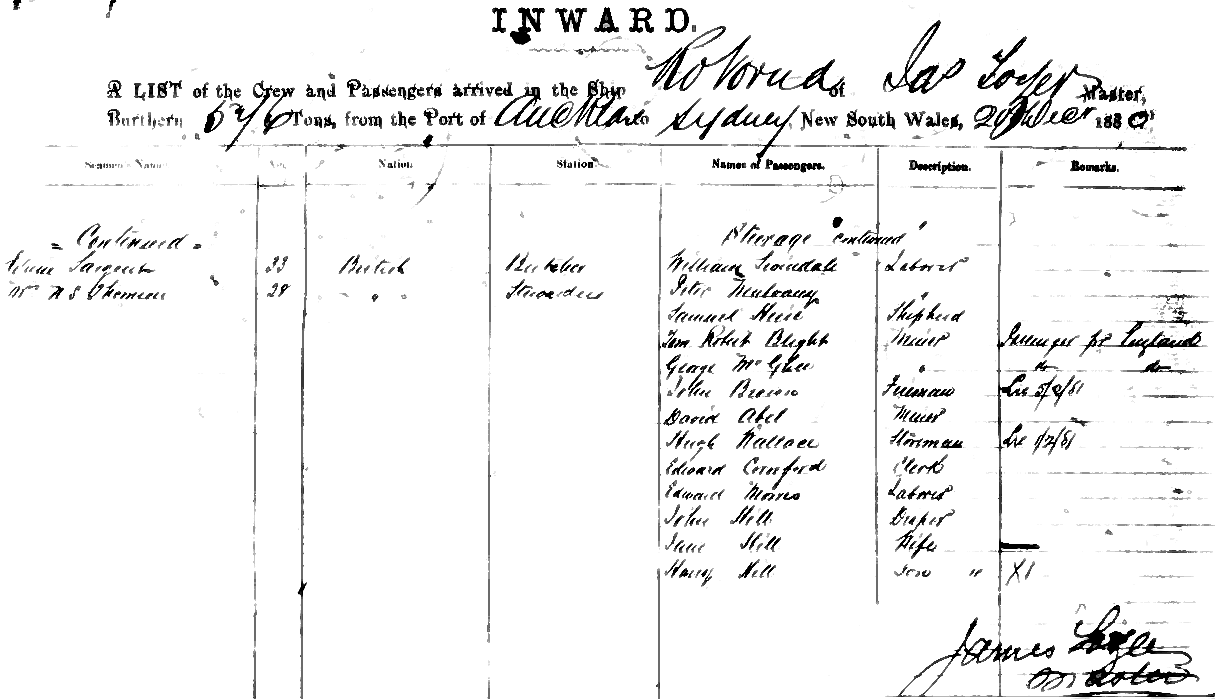 INWARD.
A LIST of the Crew and Passengers arrived in the Ship Rotorua of Jas Logie Master,
Burthern 576 Tons, from the Port of Auckland to Sydney, New South Wales, Dec 1880
Seamens Names Age Nation. Station. Names of Passengers. Description. Remarks.
= Continued = Steerage "continued"
Sargent 33 British Butcher William Laborer
28 " Stewardess Peter Mulvany "
Samuel Shepherd
Robert Blight Miner Passenger for England
George McGhee " do do
John Brown Fireman
David Abel Miner
Hugh Wallace Storeman 1/2/81
Edward Cornford Clerk
Edward Morris Laborer
John Hill Draper
Jane Hill Wife
Harry Hill Son " X1
James Logie
Master